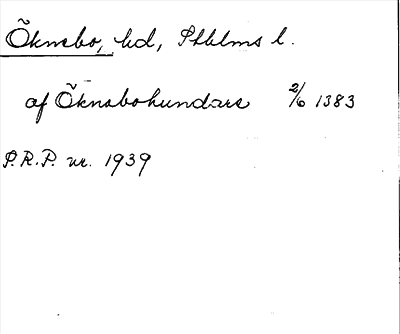 Õknebo, hd, Sthlms l.
af Õknabohundare 2/6 1383
S.R.P. nr. 1939